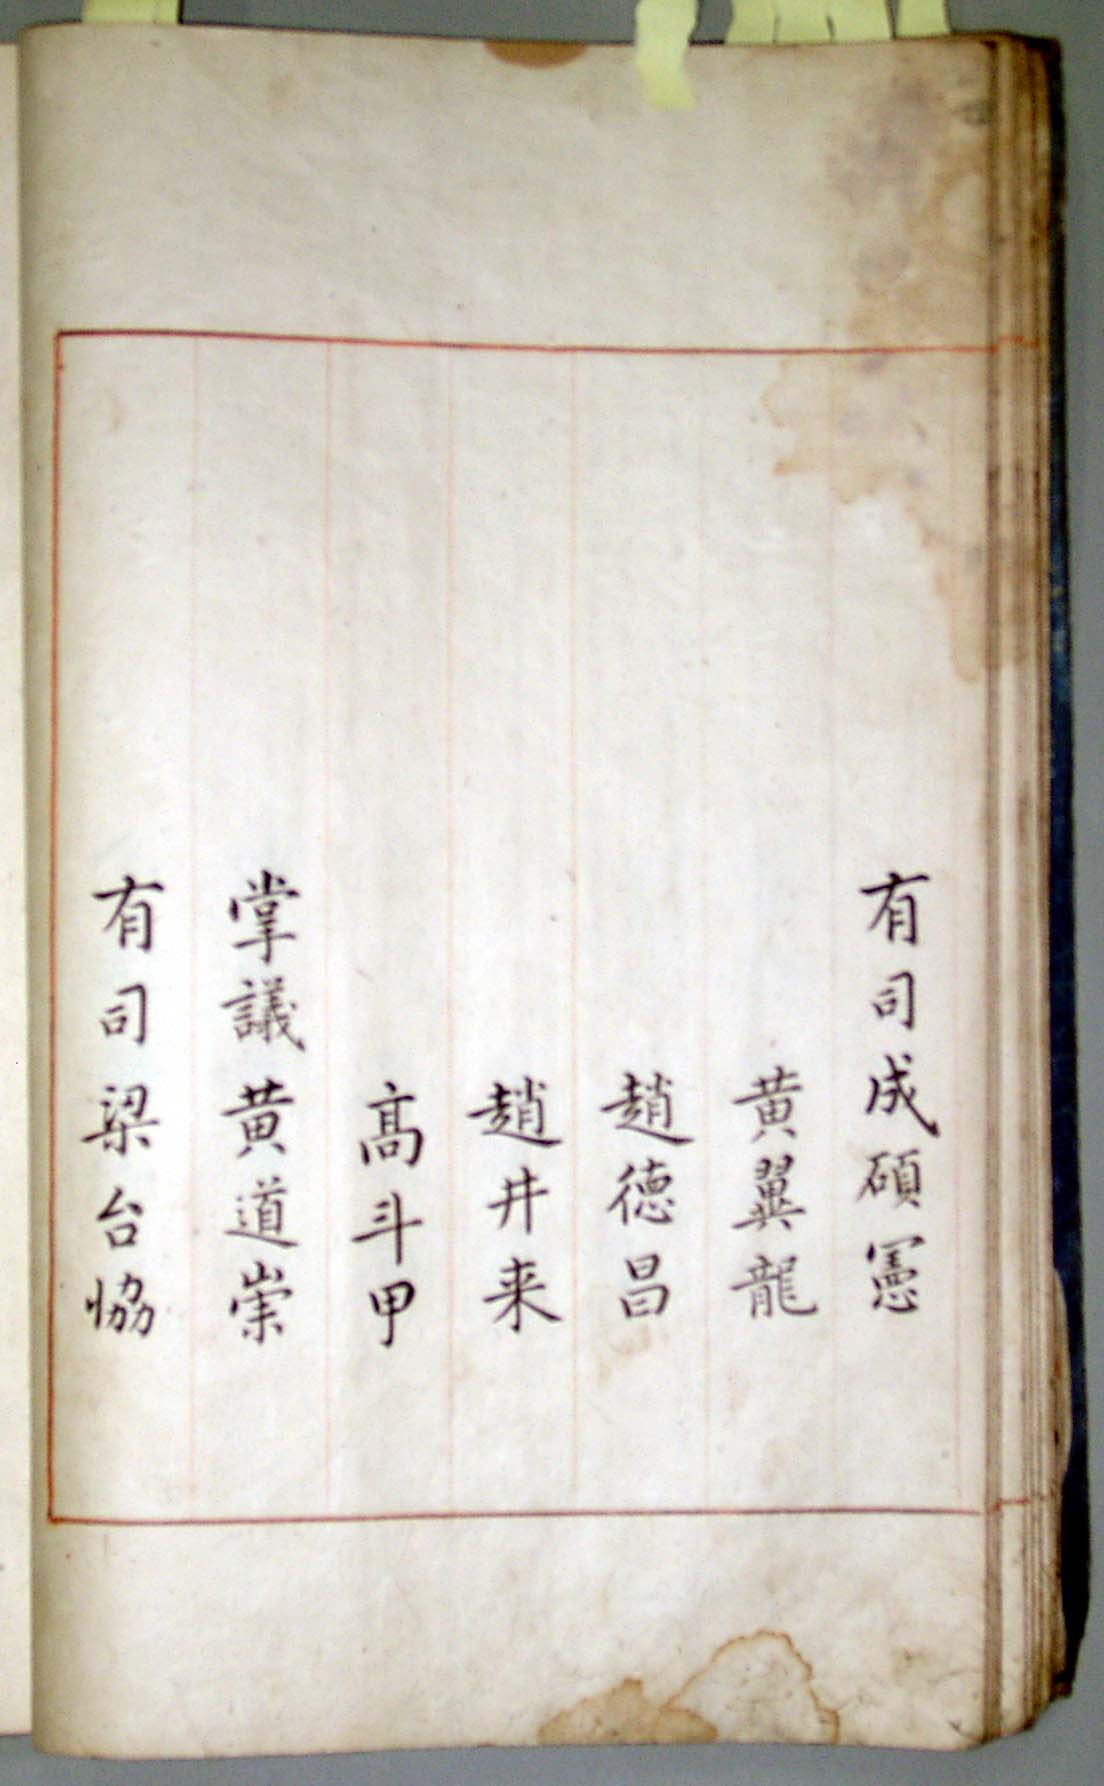 有司成碩憲
黄翼龍
趙德昌
趙井来
髙斗甲
掌議黄道崇
有司梁台恊